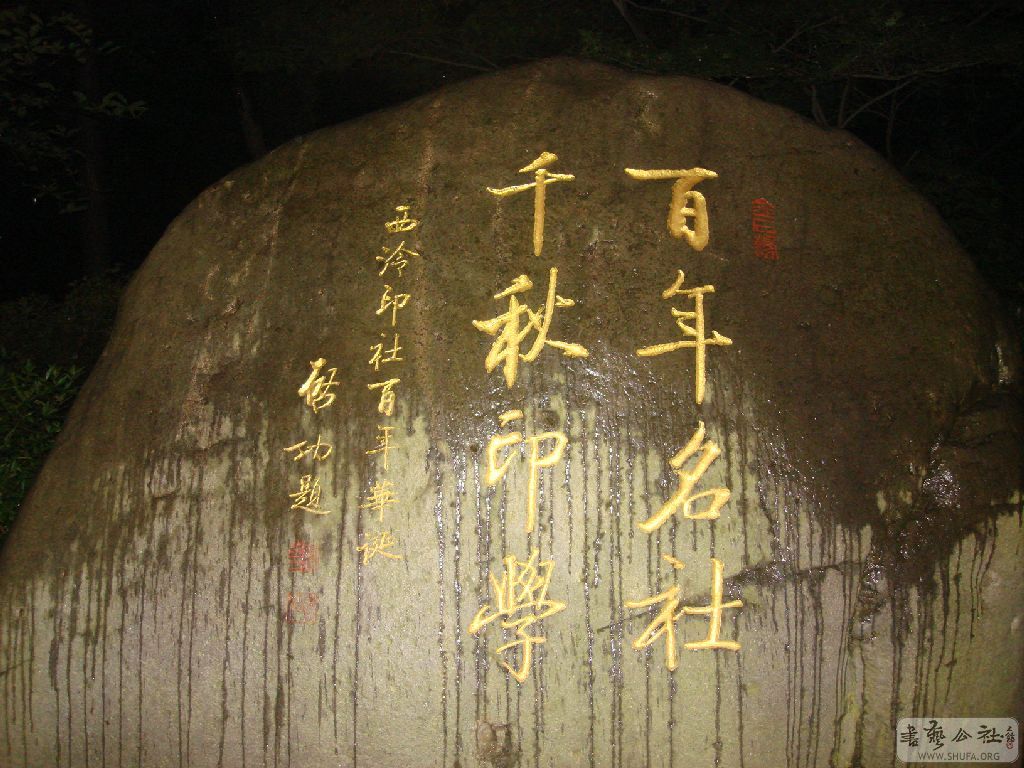 百年名社
千秋印學
西泠印社百年華誕
啟功題
書藝公社
WWW.SHUFA.ORG